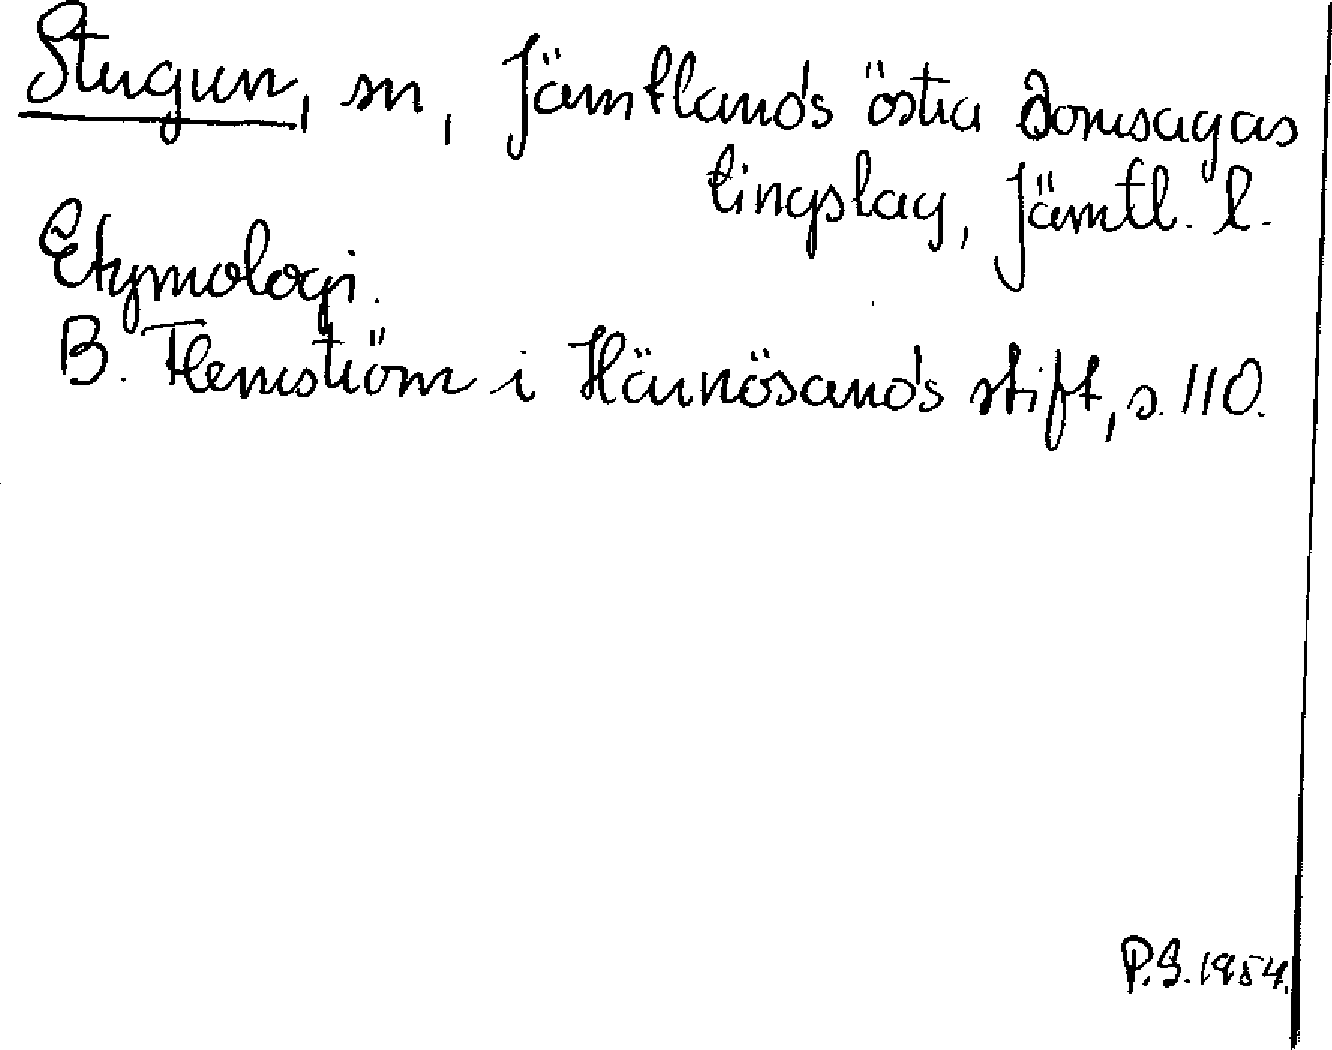 Stugun, sn, Jämtlands östra domsagas
tingslag, Jämtl. l.
Etymologi.
B. Flemström i Härnösands stift, s. 110.
P.S. 1954.